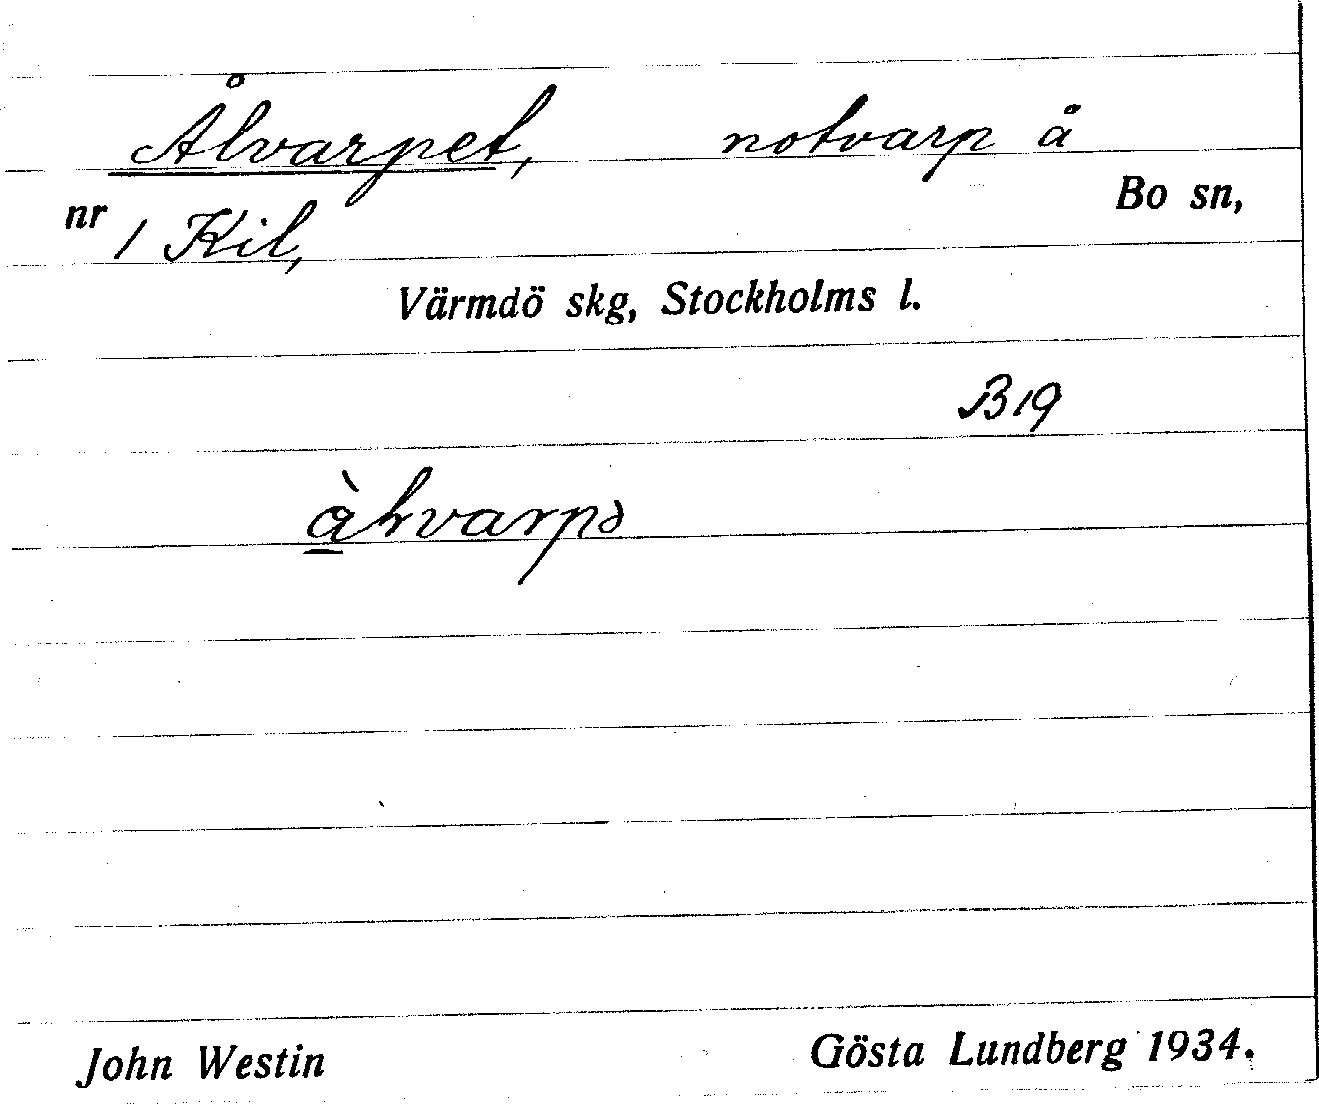 Ålvarpet, notvarp å
nr 1 Kil, Bo sn,
Värmdö skg, Stockholms l.
B19
John Westin Gösta Lundberg 1934.